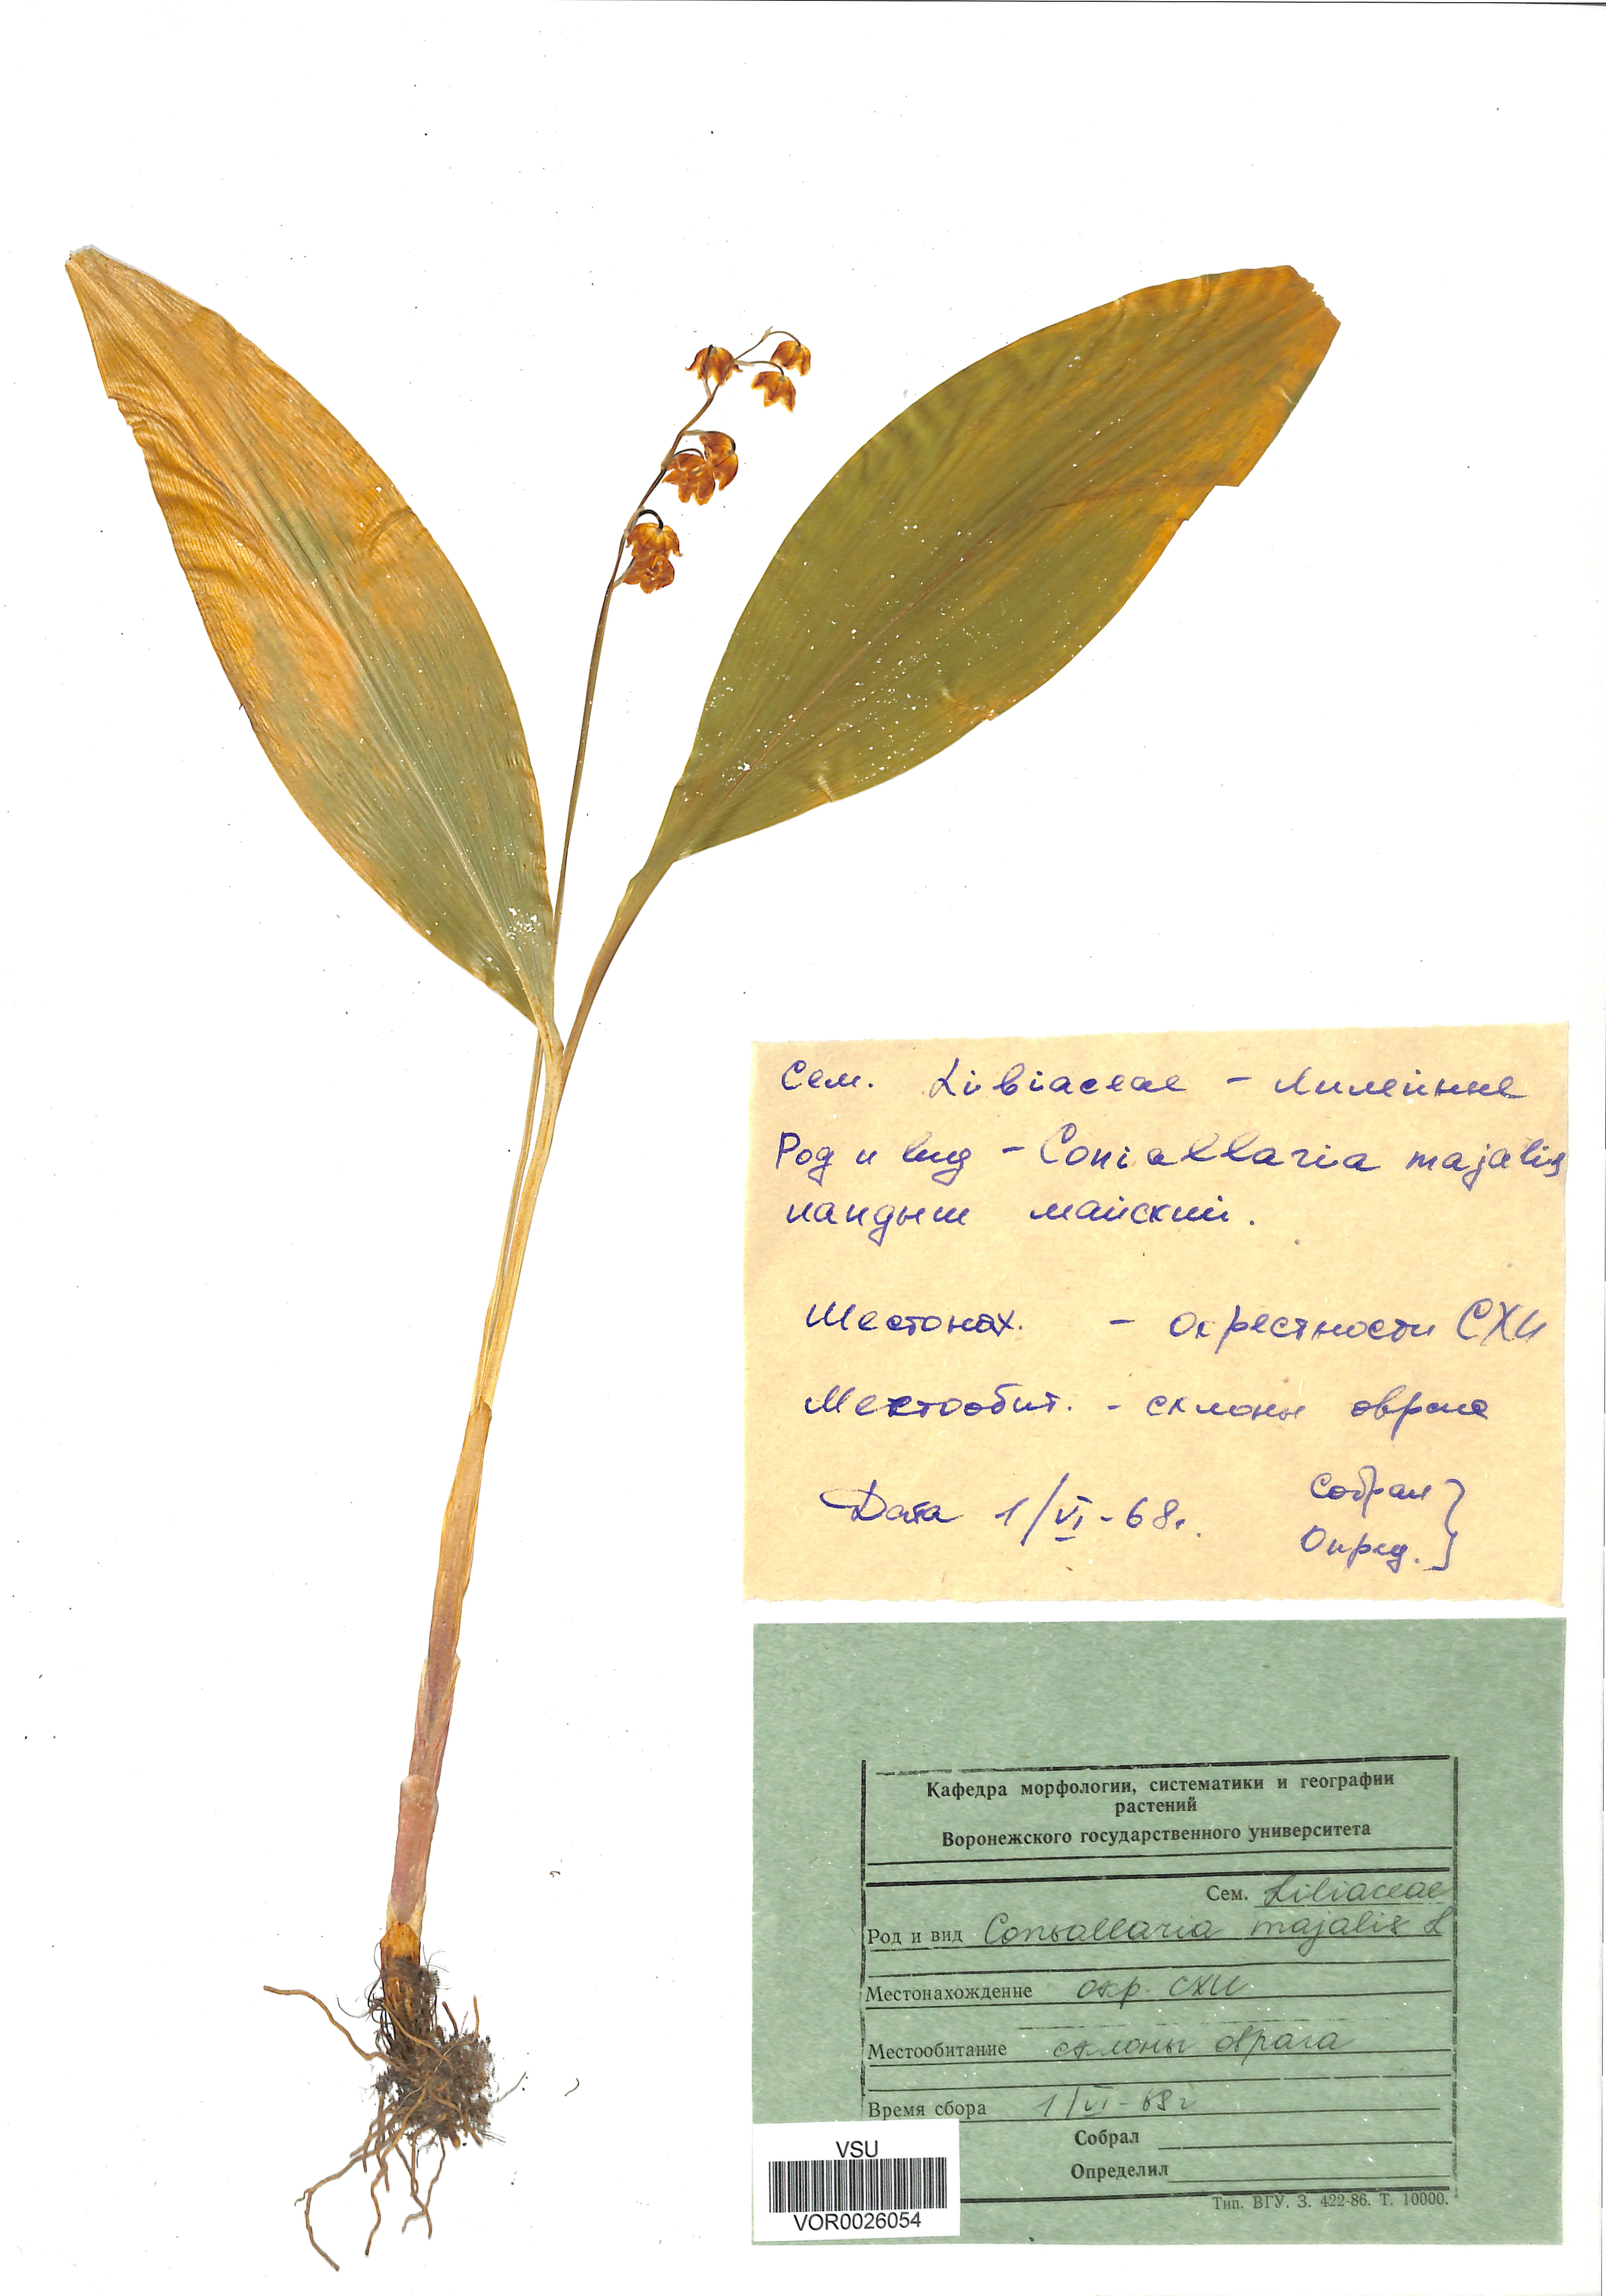 Сем. Libiaceae - Лилейные
Род и вид - Coniallaria majalis
ландыш майский.
Местонах. - окрестности СХИ
Местообит. - склоны оврага
Дата 1/VI-68г.
Собрал }
Опред. }
Кафедра морфологии, систематики и географии
растений
Воронежского государственного университета
Сем. Liliaceae
Род и вид Convallaria majalis L
Местонахождение окр. СХИ
Местообитание склоны оврага
Время сбора 1/VI-68г
Собрал
Определил
Тип. ВГУ. З. 422-86. Т. 10000.
VSU
VOR0026054